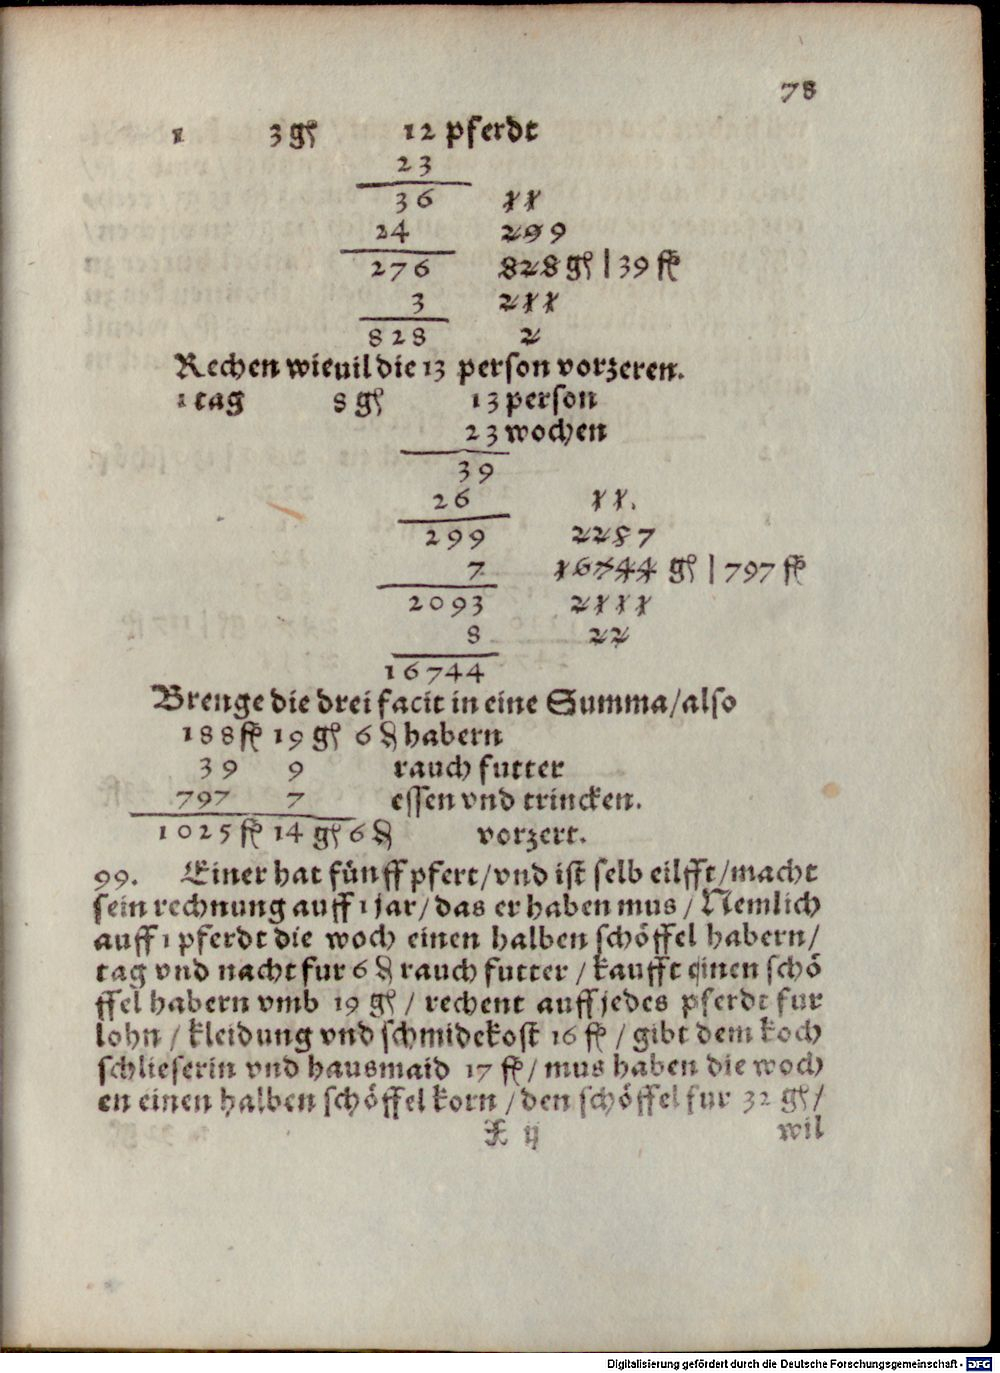 78
1 3 gſ 12 pferdt
23
36 11
24 299
276 828 gſ | 39 fſ
3 211
828 2
Rechen wieuil die 13 person vorzeren.
1 tag 8 gſ 13 person
23 wochen
39
26 11.
299 2287
7 16744 gſ | 797 fſ
2093 2111
8 22
16744
Brenge die drei facit in eine Summa/also
188 fſ 19 gſ 6 ₰ habern
39 9 rauch futter
797 7 essen vnd trincken.
1025 fſ 14 gſ 6 ₰ vorzert.
99. Einer hat fünff pfert/vnd ist selb eilfft/macht
sein rechnung auff 1 jar/das er haben mus/Nemlich
auff 1 pferdt die woch einen halben schöffel habern/
tag vnd nacht fur 6 ₰ rauch futter/kaufft einen schö
ffel habern vmb 19 gſ/rechent auff jedes pferdt fur
lohn/kleidung vnd schmidekost 16 fſ/gibt dem koch
schlieserin vnd hausmaid 17 fſ/mus haben die woch
en einen halben schöffel korn/den schöffel fur 32 gſ/
X ij wil
Digitalisierung gefördert durch die Deutsche Forschungsgemeinschaft - DFG